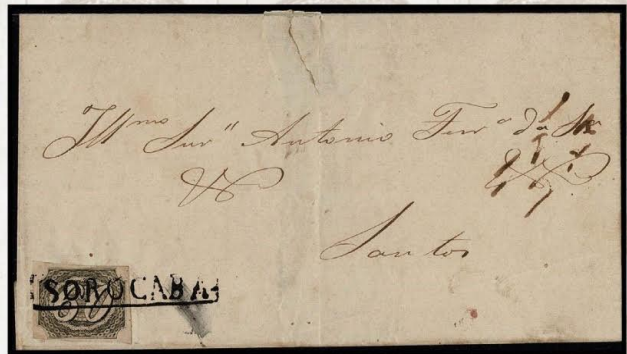 Ill^mo Snr" Antonio Ferr^a da S^a
Santos
SOROCABA
60